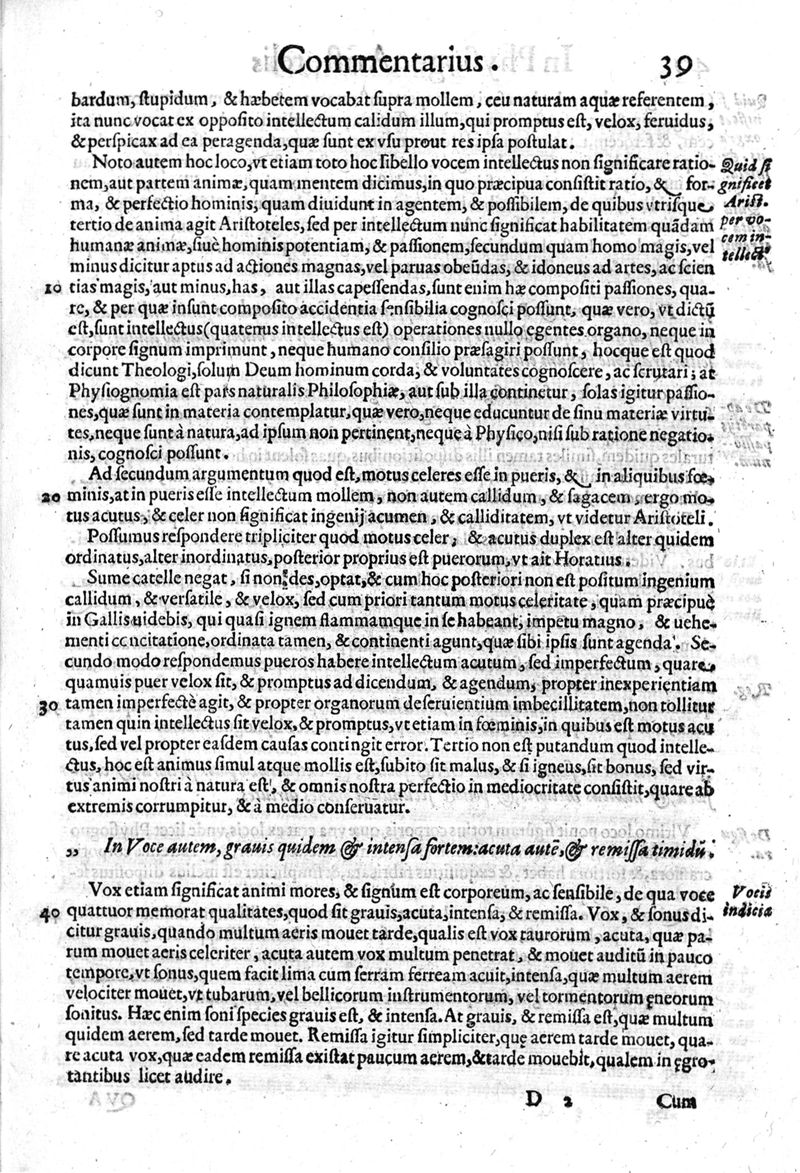 Commentarius. 39
bardum, ſtupidum, & hæbetem vocabat ſupra mollem, ceu naturam aquæ referentem,
ita nunc vocat ex oppoſito intellectum calidum illum, qui promptus eſt, velox, feruidus,
& perſpicax ad ea peragenda, quæ ſunt ex vſu prout res ipſa poſtulat.
Noto autem hoc loco, vt etiam toto hoc libello vocem intellectus non ſignificare ratio-
nem, aut partem animæ, quam mentem dicimus, in quo præcipua conſiſtit ratio, & for-
ma, & perfectio hominis, quam diuidunt in agentem, & poſſibilem, de quibus vtriſque
tertio de anima agit Ariſtoteles, ſed per intellectum nunc ſignificat habilitatem quãdam
humanæ animæ, ſiuè hominis potentiam, & paſſionem, ſecundum quam homo magis, vel
minus dicitur aptus ad actiones magnas, vel paruas obeũdas, & idoneus ad artes, ac ſcien
10 tias magis, aut minus, has, aut illas capeſſendas, ſunt enim hæ compoſiti paſſiones, qua-
re, & per quæ inſunt compoſito accidentia ſenſibilia cognoſci poſſunt, quæ vero, vt dictũ
eſt, ſunt intellectus (quatenus intellectus eſt) operationes nullo egentes organo, neque in
corpore ſignum imprimunt, neque humano conſilio præſagiri poſſunt, hocque eſt quod
dicunt Theologi, ſolum Deum hominum corda, & voluntates cognoſcere, ac ſcrutari; at
Phyſiognomia eſt pars naturalis Philoſophiæ, aut ſub illa continetur, ſolas igitur paſſio-
nes, quæ ſunt in materia contemplatur, quæ vero, neque educuntur de ſinu materiæ virtu-
tes, neque ſunt à natura, ad ipſum non pertinent, neque à Phyſico, niſi ſub ratione negatio-
nis, cognoſci poſſunt.
Ad ſecundum argumentum quod eſt, motus celeres eſſe in pueris, & in aliquibus fœ-
20 minis, at in pueris eſſe intellectum mollem, non autem callidum, & ſagacem, ergo mo-
tus acutus, & celer non ſignificat ingenij acumen, & calliditatem, vt videtur Ariſtoteli.
Poſſumus reſpondere tripliciter quod motus celer, & acutus duplex eſt alter quidem
ordinatus, alter inordinatus, poſterior proprius eſt puerorum, vt ait Horatius.
Sume catelle negat, ſi non des, optat, & cum hoc poſteriori non eſt poſitum ingenium
callidum, & verſatile, & velox, ſed cum priori tantum motus celeritate, quam præcipuè
in Gallis uidebis, qui quaſi ignem flammamque in ſe habeant, impetu magno, & uehe-
menti concitatione, ordinata tamen, & continenti agunt, quæ ſibi ipſis ſunt agenda. Se-
cundo modo reſpondemus pueros habere intellectum acutum, ſed imperfectum, quare,
quamuis puer velox ſit, & promptus ad dicendum, & agendum, propter inexperientiam
30 tamen imperfectè agit, & propter organorum deſeruientium imbecillitatem, non tollitur
tamen quin intellectus ſit velox, & promptus, vt etiam in fœminis, in quibus eſt motus acu
tus, ſed vel propter eaſdem cauſas contingit error. Tertio non eſt putandum quod intelle-
ctus, hoc eſt animus ſimul atque mollis eſt, ſubito ſit malus, & ſi igneus, ſit bonus, ſed vir-
tus animi noſtri à natura eſt, & omnis noſtra perfectio in mediocritate conſiſtit, quare ab
extremis corrumpitur, & à medio conſeruatur.
„ In Voce autem, grauis quidem & intenſa fortem: acuta autẽ, & remiſſa timidũ.
Vox etiam ſignificat animi mores, & ſignum eſt corporeum, ac ſenſibile, de qua voce
40 quattuor memorat qualitates, quod ſit grauis, acuta, intenſa, & remiſſa. Vox, & ſonus di-
citur grauis, quando multum aeris mouet tarde, qualis eſt vox taurorum, acuta, quæ pa-
rum mouet aeris celeriter, acuta autem vox multum penetrat, & mouet auditũ in pauco
tempore, vt ſonus, quem facit lima cum ſerram ferream acuit, intenſa, quæ multum aerem
velociter mouet, vt tubarum, vel bellicorum inſtrumentorum, vel tormentorum ęneorum
ſonitus. Hæc enim ſoni ſpecies grauis eſt, & intenſa. At grauis, & remiſſa eſt, quæ multum
quidem aerem, ſed tarde mouet. Remiſſa igitur ſimpliciter, quę aerem tarde mouet, qua-
re acuta vox, quæ eadem remiſſa exiſtat paucum aerem, & tarde mouebit, qualem in ęgro-
tantibus licet audire.
D 2 Cum
Quid ſi
gnificet
Ariſt.
per vo-
cem in-
tellectꝰ
Vocis
indicia